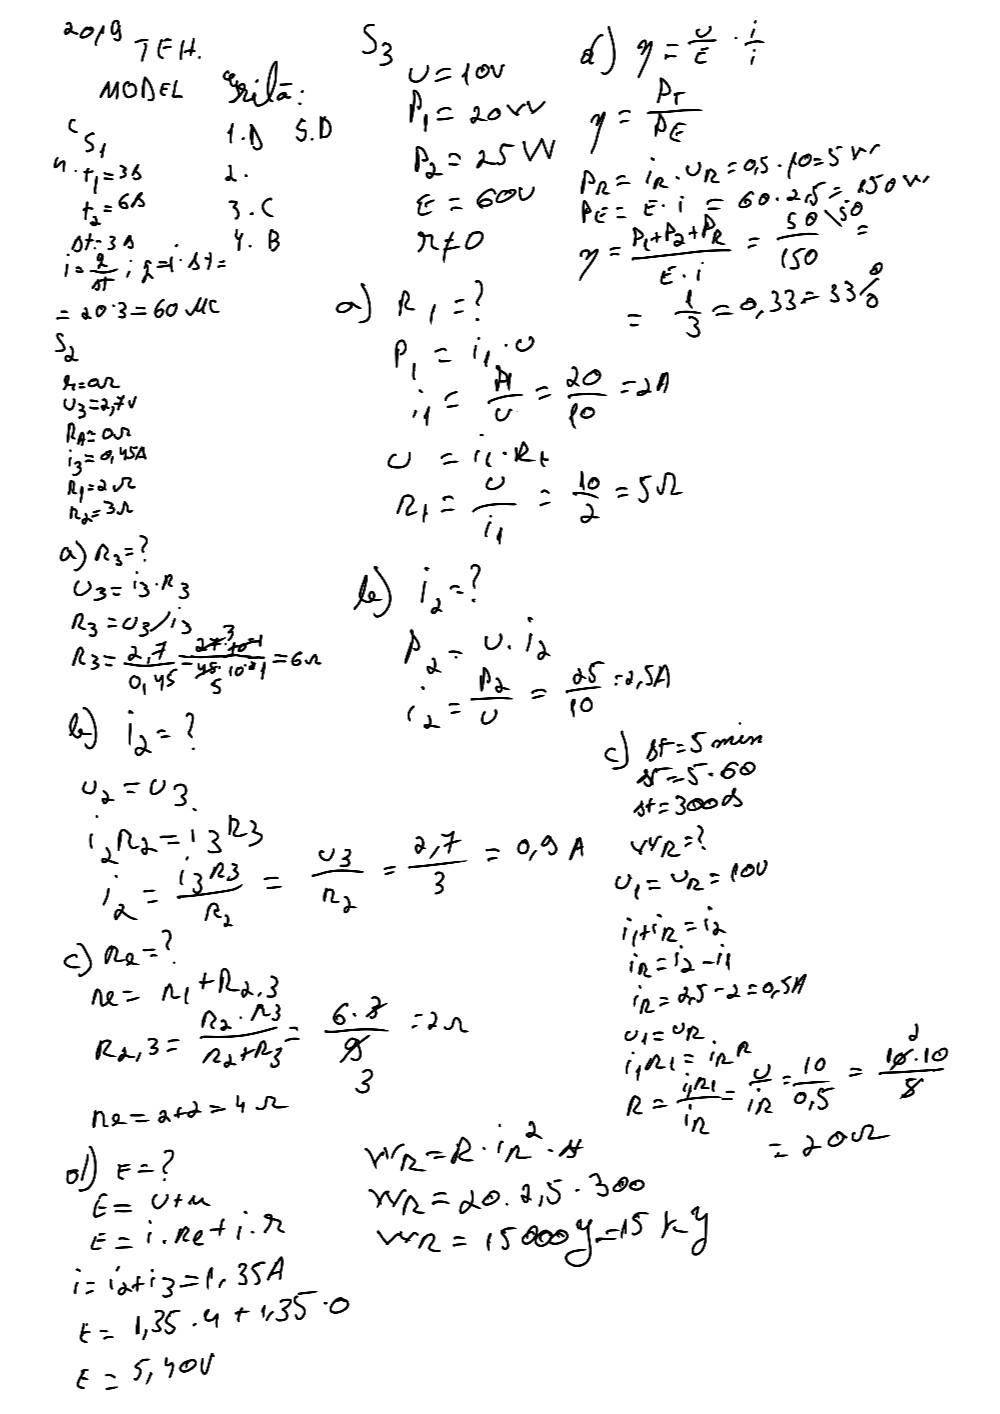 2019 TEH.
MODEL
Grilă:
1.D 5.D
2.
3.C
4.B
S1
4.
t1=3s
t2=6s
Δt=3s
i=q/Δt; q=i·Δt=
=20·3=60 μC
S2
r=0Ω
U3=2,7V
RA=0Ω
i3=0,45A
R1=2Ω
R2=3Ω
a) R3=?
U3=i3·R3
R3=U3/i3
R3=2,7/0,45=27·10^-1/45·10^-2=6Ω
b) i2=?
U2=U3
i2R2=i3R3
i2=i3R3/R2=U3/R2=2,7/3=0,9A
c) Re=?
Re=R1+R2,3
R2,3=R2·R3/R2+R3=6·3/9=2Ω
Re=2+2=4Ω
d) E=?
E=U+u
E=i·Re+i·r
i=i2+i3=1,35A
E=1,35·4+1,35·0
E=5,40V
S3
U=10V
P1=20W
P2=25W
E=60V
r≠0
a) R1=?
P1=i1·U
i1=P1/U=20/10=2A
U=i1·R1
R1=U/i1=10/2=5Ω
b) i2=?
P2=U·i2
i2=P2/U=25/10=2,5A
c) Δt=5min
Δt=5·60
Δt=300s
WR=?
U1=UR=10V
i1+iR=i2
iR=i2-i1
iR=2,5-2=0,5A
U1=UR
i1R1=iRR
R=i1R1/iR=U/iR=10/0,5=10·10/5
=20Ω
WR=R·iR²·Δt
WR=20·2,5·300
WR=15000J=15kJ
d) η=U/E·i/i
η=PT/PE
PR=iR·UR=0,5·10=5W
PE=E·i=60·2,5=150W
η=P1+P2+PR/E·i=50/150=
=1/3=0,33=33%